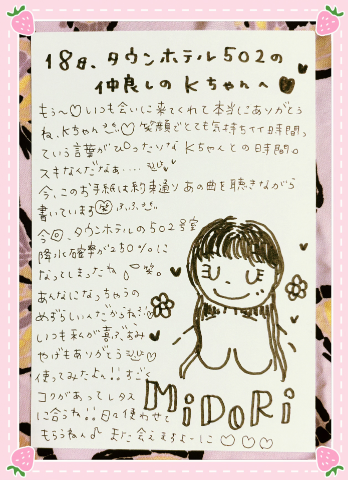 18日、タウンホテル502の
仲良しのKちゃんへ
もぅ〜いつも会いに来てくれて本当にありがとう
ね、Kちゃん 笑顔でとても気持ちイイ時間っ
ていう言葉がぴったりなKちゃんとの時間。
スキなんだなぁ....
今、このお手紙は約束通りあの曲を聴きながら
書いています 笑 ふふふ
今回、タウンホテルの502号室
降水確率が250%に
なってしまったね 笑。
あんなになっちゃうの
めずらしいんだからね
いつも私が喜ぶおみ
やげもありがとう
使ってみたよん!!すごく
コクがあってレタス
に合うね!!日々使わせて
もらうねん♪ また会えますよーに
MiDORi